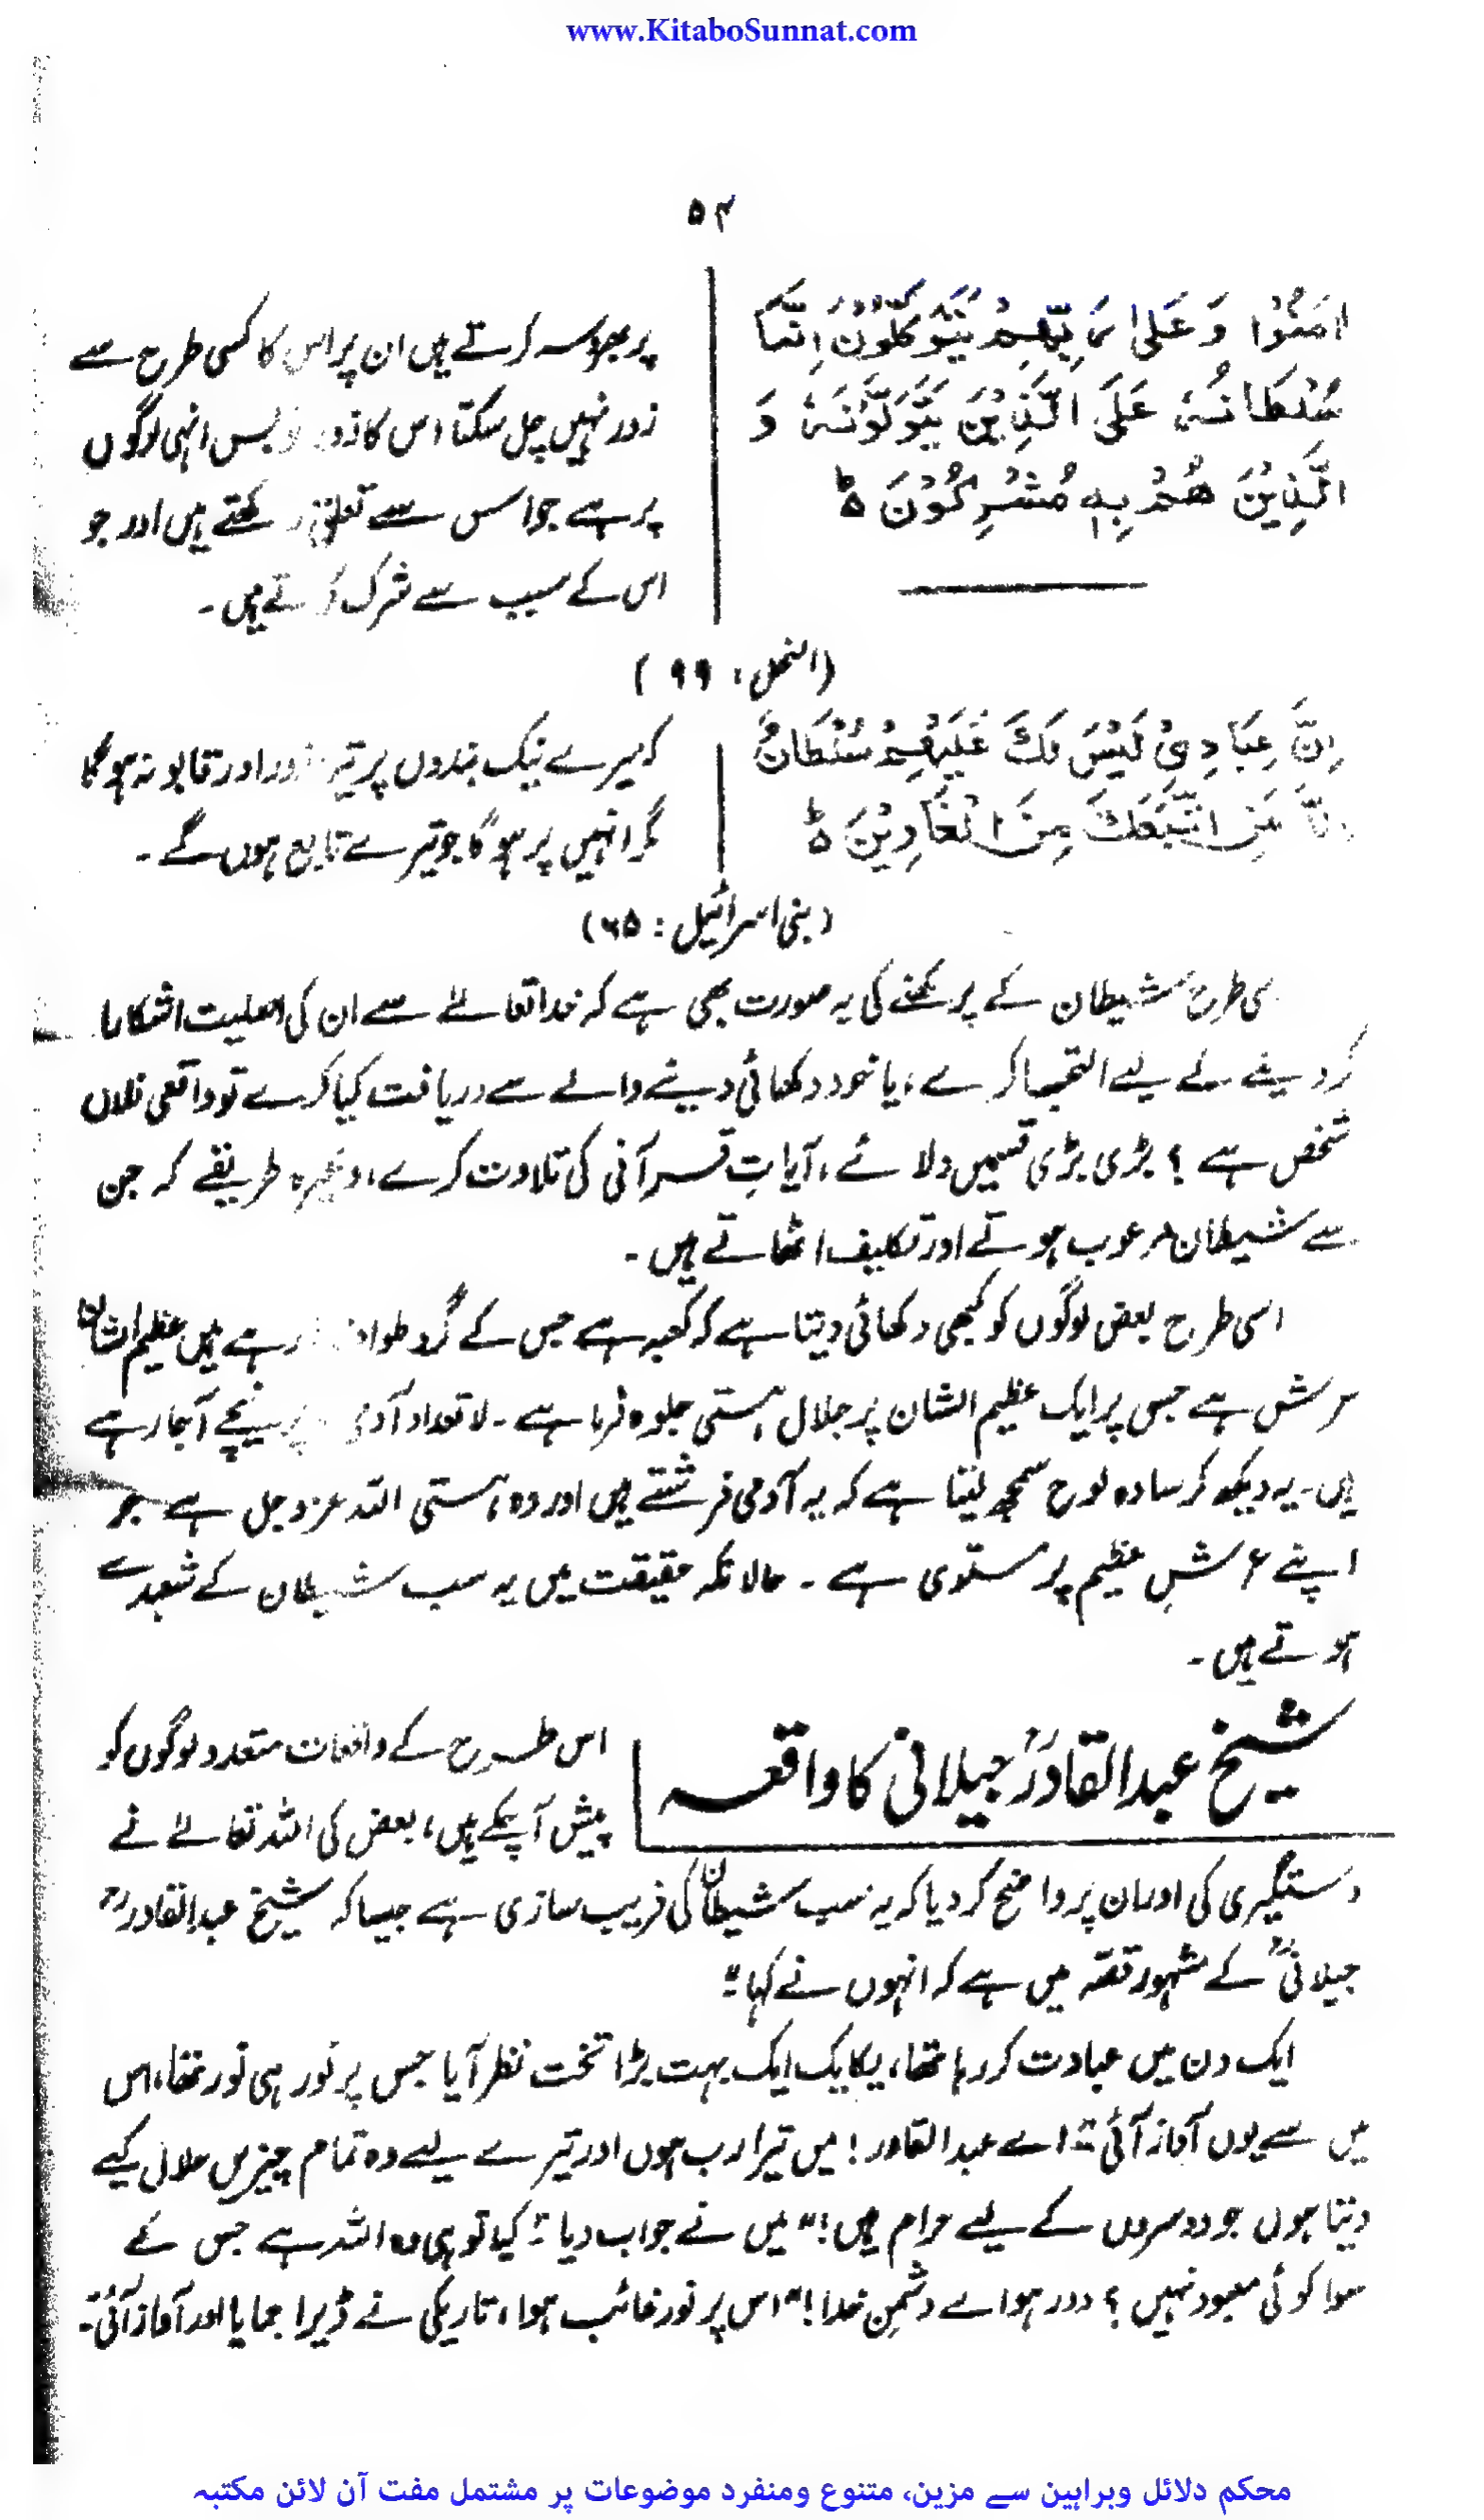 www.KitaboSunnat.com
۵۴
اٰمَنُوْا وَعَلٰى رَبِّهِمْ يَتَوَكَّلُوْنَ اِنَّمَا
سُلْطَانُهٗ عَلَى الَّذِيْنَ يَتَوَلَّوْنَهٗ وَ
الَّذِيْنَ هُمْ بِهٖ مُشْرِكُوْنَ ؕ
پر بھروسہ کرتے ہیں ان پر اس کا کسی طرح سے
زور نہیں چل سکتا اس کا زور بس انہی لوگوں
پر ہے جو اس سے تعلق رکھتے ہیں اور جو
اس کے سبب سے شرک کرتے ہیں۔
(النحل: ۹۹)
اِنَّ عِبَادِيْ لَيْسَ لَكَ عَلَيْهِمْ سُلْطَانٌ
اِلَّا مَنِ اتَّبَعَكَ مِنَ الْغَاوِيْنَ ؕ
کہ میرے نیک بندوں پر تیرا زور اور قابو نہ ہوگا
مگر انہیں پر ہوگا جو تیرے تابع ہوں گے۔
(بنی اسرائیل: ۶۵)
اسی طرح شیطان کے پرکھنے کی یہ صورت بھی ہے کہ خدا تعالےٰ سے ان کی اصلیت آشکارا
کر دینے کے لیے التجا کرے، یا خود دکھائی دینے والے سے دریافت کیا کرے تو واقعی فلاں
شخص ہے؟ بڑی بڑی قسمیں دلائے، آیاتِ قرآنی کی تلاوت کرے، وغیرہ طریقے کہ جن
سے شیطان مرعوب ہوتے اور تکلیف اٹھاتے ہیں۔
اسی طرح بعض لوگوں کو کبھی دکھائی دیتا ہے کہ کعبہ ہے جس کے گرد طواف کر رہے ہیں عظیم الشان
عرش ہے جس پر ایک عظیم الشان پر جلال ہستی جلوہ فرما ہے۔ لاتعداد آدمی نیچے آ جا رہے
ہیں۔ یہ دیکھ کر سادہ لوح سمجھ لیتا ہے کہ یہ آدمی فرشتے ہیں اور وہ ہستی اللہ عزوجل ہے جو
اپنے عرشِ عظیم پر مستوی ہے۔ حالانکہ حقیقت میں یہ سب شیطان کے شعبدے
ہوتے ہیں۔
شیخ عبدالقادرؒ جیلانی کا واقعہ
اس طرح کے واقعات متعدد لوگوں کو
پیش آ چکے ہیں، بعض کی اللہ تعالےٰ نے
دستگیری کی اور ان پر واضح کر دیا کہ یہ سب شیطان کی فریب سازی ہے جیسا کہ شیخ عبدالقادرؒ
جیلانیؒ کے مشہور قصہ میں ہے کہ انہوں نے کہا "
ایک دن میں عبادت کر رہا تھا، یکایک ایک بہت بڑا تخت نظر آیا جس پر نور ہی نور تھا، اس
میں سے یوں آواز آئی "اے عبدالقادر! میں تیرا رب ہوں اور تیرے لیے وہ تمام چیزیں حلال کیے
دیتا ہوں جو دوسروں کے لیے حرام ہیں!" میں نے جواب دیا "کیا تو ہی وہ اللہ ہے جس کے
سوا کوئی معبود نہیں؟ دور ہو اے دشمنِ خدا!" اس پر نور غائب ہوا، تاریکی نے ڈیرا جمایا اور آواز آئی۔
محکم دلائل وبراہین سے مزین، متنوع ومنفرد موضوعات پر مشتمل مفت آن لائن مکتبہ